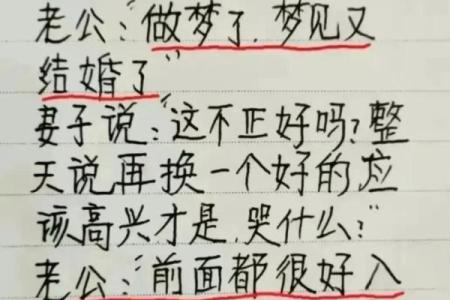 老公:“做梦了,梦见又
结婚了”
妻子说:“这不正好吗?整
天说再换一个好的应
该高兴才是,哭什么?”
老公:“前面都很好入